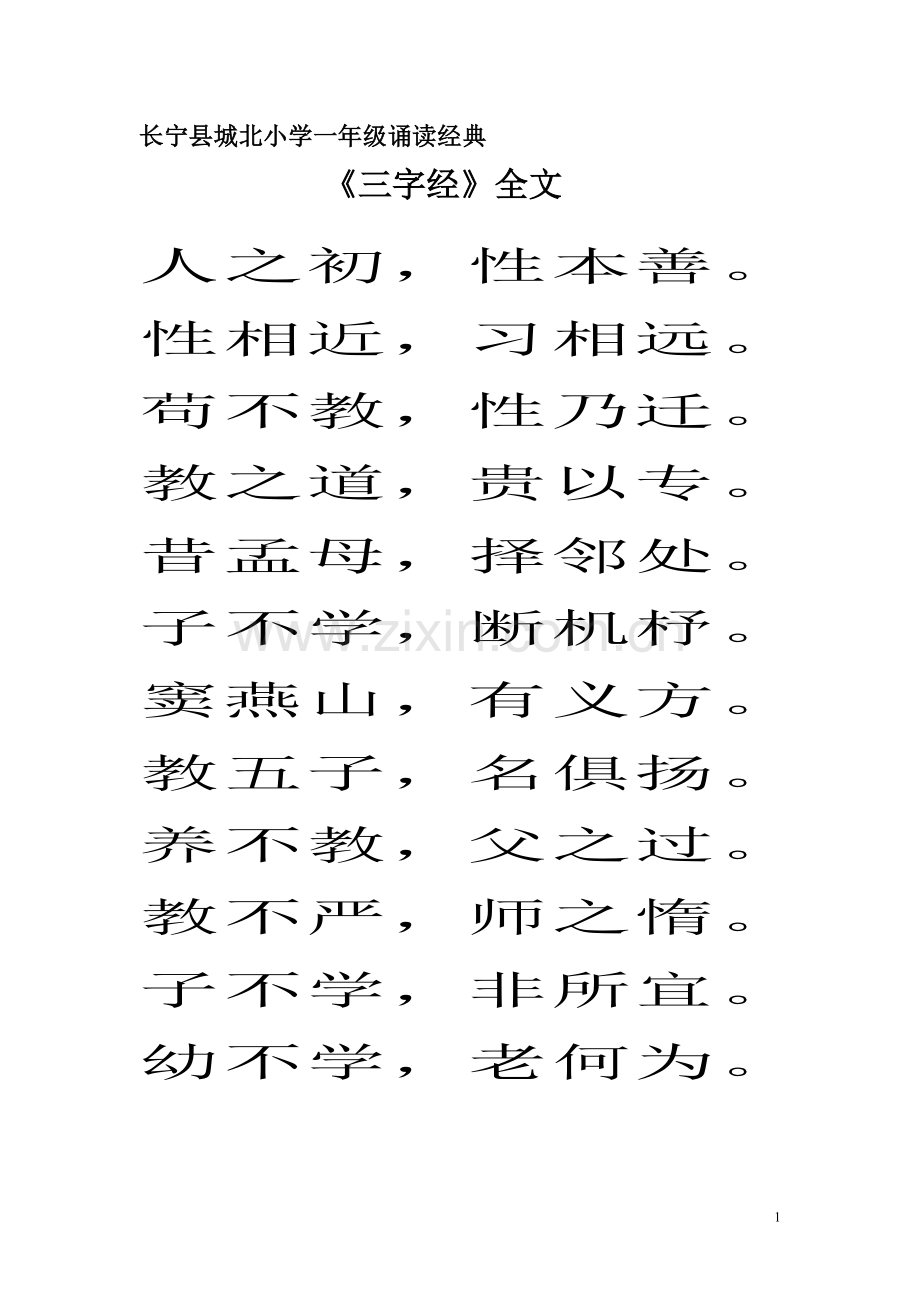 长宁县城北小学一年级诵读经典
《三字经》全文
人之初，性本善。
性相近，习相远。
苟不教，性乃迁。
教之道，贵以专。
昔孟母，择邻处。
子不学，断机杼。
窦燕山，有义方。
教五子，名俱扬。
养不教，父之过。
教不严，师之惰。
子不学，非所宜。
幼不学，老何为。
www.zixin.com.cn
1